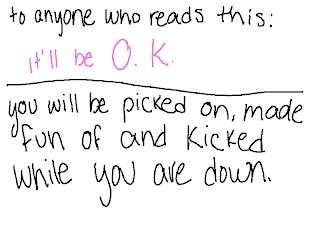 to anyone who reads this:
it'll be O.K.
you will be picked on, made
fun of and kicked
while you are down.